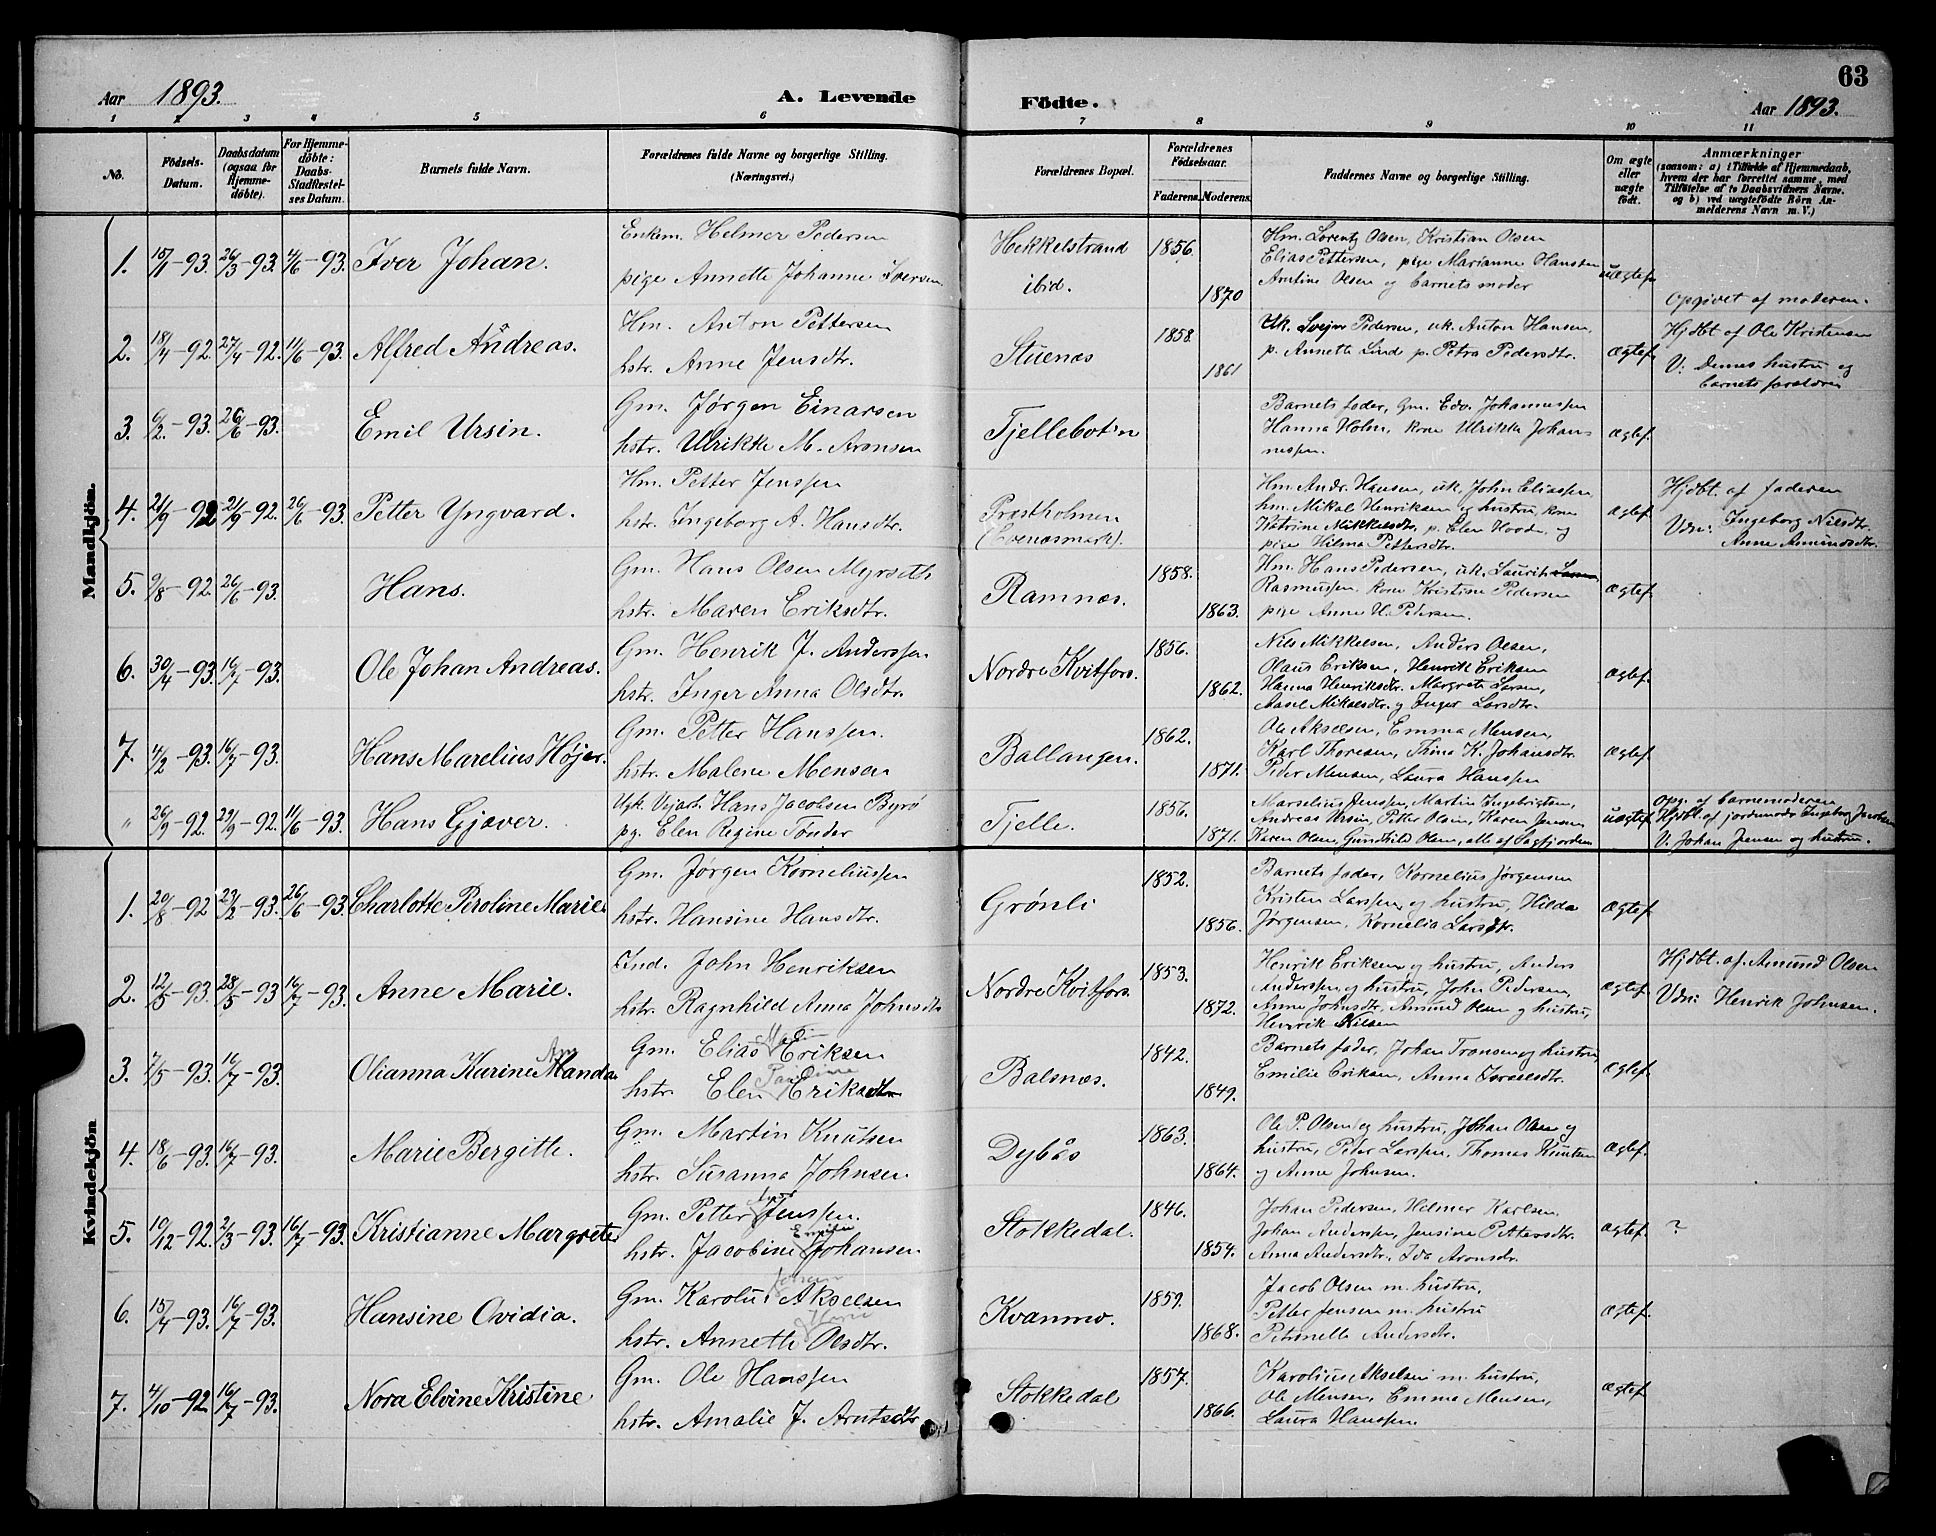 Aar 1893. A. Levende Födte. Aar 1893. 63
1 2 3 4 5 6 7 8 9 10 11
No. Födsels-Datum. Daabsdatum (ogsaa for Hjemme-döbte). For Hjemme-döbte: Daabs-Stadfæstel-ses Datum. Barnets fulde Navn. Forældrenes fulde Navne og borgerlige Stilling. (Næringsvei.) Forældrenes Bopæl. Forældrenes Födselsaar. Faderens. Moderens. Faddernes Navne og borgerlige Stilling. Om ægte eller uægte födt. Anmærkninger (saasom: a) i Tilfælde af Hjemmedaab, hvem der har forrettet samme, med Tilföielse af to Daabsvidners Navne. og b) ved uægtefödte Börn An-melderens Navn m. V.)
Mandkjön.
1. 15/1-93. 26/3-93. 4/6-93. Iver Johan. Enkem. Helmer Pedersen
pige Annette Johanne Iversen
Hekkelstrand ibid. 1856. 1870
Hm. Lorentz Olsen, Kristian Olsen
Elias Pettersen, pige Marianne Hansen
Arntine Olsen og barnets moder
uægtef. Opgivet af moderen.
2. 18/4-92. 27/4-92. 11/6-93. Alfred Andreas. Hm. Anton Pettersen
hstr. Anne Jensdtr.
Stuenæs 1858. 1861
Uk. Svejn Pedersen, uk. Anton Hansen,
p. Annette Lind p. Petra Pedersdtr.
ægtef. Hjdbt. af Ole Kristensen
V: Dennes hustru og
barnets forældre
3. 6/2-93. 26/6-93. Emil Ursin. Gm. Jørgen Einarsen
hstr. Ulrikke M. Aronsen
Tjellebotn
Barnets fader, Gm. Edv. Johannessen
Hanna Holm, kone Ulrikke Johan
nessen.
ægtef.
4. 21/9-92 21/9-92. 26/6-93. Petter Yngvard. Hm. Petter Jenssen
hstr. Ingeborg A. Hansdtr.
Prestholmen
(Evenæsmark).
Hm. Andr. Hansen, uk. John Eliassen,
hm. Mikal Henriksen og hustru, kone
Katrine Mikkelsdtr. p. Elen Hoode, og
pige Hilma Pettersdtr.
ægtef. Hjdbt. af faderen
Vdn: Ingeborg Nilsdtr.
Anne Amundsdtr.
5. 9/8-92. 26/6-93. Hans. Gm. Hans Olsen Myrseth
hstr. Maren Eriksdtr.
Ramnæs. 1858. 1863.
Hm. Hans Pedersen, uk. Laurits
Rasmussen, kone Kristine Pedersen
pige Anne H. Pedersen.
ægtef.
6. 30/4-93. 16/7-93. Ole Johan Andreas. Gm. Henrik J. Anderssen
hstr. Inger Anna Olsdtr.
Nordre Kvitfors. 1856. 1862.
Nils Mikkelsen, Anders Olsen,
Olaus Eriksen, Henrik Eriksen
Hanna Henriksdtr. Margrete Larsen,
Aasel Mikalsdtr. og Inger Larsdtr.
ægtef.
7. 4/2-93. 16/7-93. Hans Marelius Højer. Gm. Petter Hanssen.
hstr. Malene Mensen
Ballangen. 1862. 1871.
Ole Akselsen, Emma Mensen,
Karl Thoresen, Thina K. Johansdtr.
Peder Mensen, Laura Hanssen
ægtef.
" 26/9-92. 29/9-92. 11/6-93. Hans Gjæver. Ugk. Vejarb. Hans Jacobsen Byrø
pg. Elen Regine Tønder
Tjelle. 1856. 1871.
Marselius Jenssen, Martin Ingebrigtsen,
Andreas Ursin, Petter Olsen, Karen Jensen
Karen Olsen, Gundhild Olsen, alle af Sagfjorden
uægtef. Opg. af barnemoderen
Hjdbt. af jordmoder Ingeborg Jacobsen
V. Johan Jensen og hustru.
Kvindekjön
1. 20/8-92 22/2-93. 26/6-93. Charlotte Peroline Marie. Gm. Jørgen Korneliussen
hstr. Hansine Hansdtr.
Grønli 1852. 1856.
Barnets fader, Kornelius Jørgensen
Kristen Larssen og hustru, Hilda
Jørgensen, Kornelia Larsdtr.
ægtef.
2. 12/5-93. 28/5-93 16/7-93. Anne Marie. Ind. John Henriksen
hstr. Ragnhild Anna Johnsdtr
Nordre Kvitfors. 1853. 1872.
Henrik Eriksen og hustru, Anders
Anderssen og hustru, John Pedersen,
Anne Johnsdtr, Amund Olsen og hustru,
Henrik Nilsen
ægtef. Hjdbt. af Amund Olsen
Vdn: Henrik Johnsen.
3. 7/5-93. 16/7-93. Olianna Karine Manda Gm. Elias Eriksen
hstr. Elen Eriksdtr
Balsnæs. 1842. 1849.
Barnets fader, Johan Tronsen og hustru,
Emilie Eriksen, Anna Israelsdtr.
ægtef.
4. 18/6-93. 16/7-93. Marie Bergitte. Gm. Martin Knutsen
hstr. Susanna Johnsen.
Dybås 1863. 1864.
Ole P. Olsen og hustru, Johan Olsen og
hustru, Peter Larssen, Thomas Knutsen
og Anne Johnsen.
ægtef.
5. 10/12-92. 2/3-93. 16/7-93. Kristianne Margrete Gm. Petter Jenssen.
hstr. Jacobine Johansen
Stokkedal. 1846. 1854.
Johan Pedersen, Helmer Karlsen,
Johan Anderssen, Jensine Pettersdtr.
Anna Andersdtr. Ida Aronsdtr.
ægtef. ?
6. 15/4-93. 16/7-93. Hansine Ovidia. Gm. Karolus Johan Akselsen
hstr. Annette Olsdtr.
Kvanmo. 1859. 1868.
Jacob Olsen m. hustru,
Petter Jensen m. hustru
Petronelle Andersdtr.
ægtef.
7. 4/10-92. 16/7-93. Nora Elvine Kristine Gm. Ole Hanssen
hstr. Amalie J. Arntsdtr
Stokkedal 1857. 1866.
Karolius Akselsen m. hustru,
Ole Mensen, Emma Mensen,
Laura Hanssen.
ægtef.